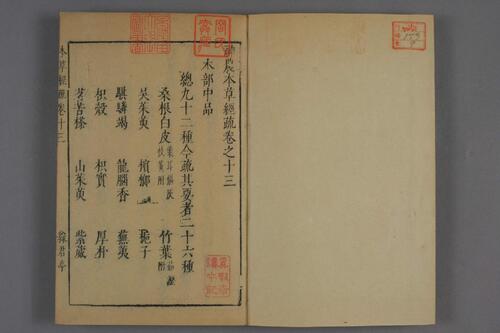 神農本草經疏卷之十三
木部中品
總九十二種今疏其要者二十六種
桑根白皮 竹葉
吳茱萸 檳榔 梔子
騏驎竭 龍腦香 蕪荑
枳殼 枳實 厚朴
茗苦𣗪 山茱萸 紫葳
本草經疏卷十三
綠君亭